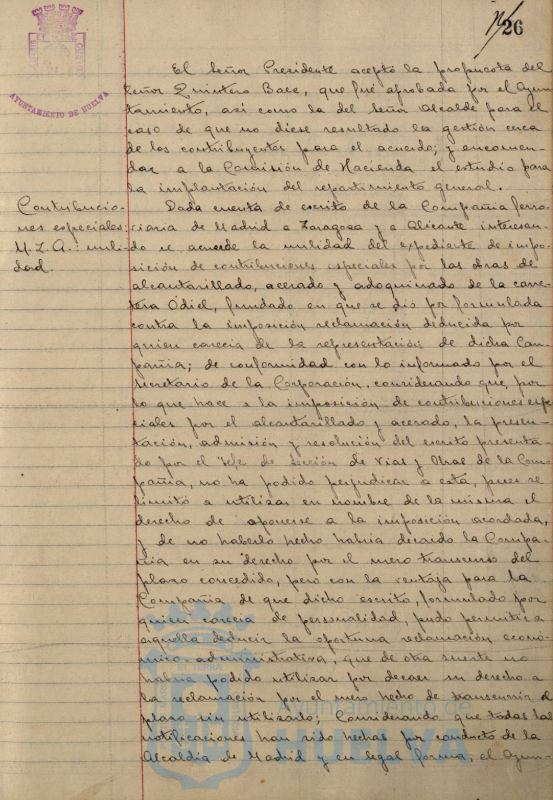 26
AYUNTAMIENTO DE HUELVA
El Señor Presidente aceptó la propuesta del
Señor Quintero Baez, que fué aprobada por el Ayun-
tamiento, así como la del Señor Alcalde para el
caso de que no diese resultado la gestión cerca
de los contribuyentes para el acuerdo; y encomen-
dar a la Comisión de Hacienda el estudio para
la implantación del repartimiento general.
Contribucio-
nes especiales:
M.Z.A.: nuli-
dad.
Dada cuenta de escrito de la Compañia ferro-
viaria de Madrid a Zaragoza y a Alicante interesan-
do se acuerde la nulidad del expediente de impo-
sición de contribuciones especiales por las obras de
alcantarillado, acerado y adoquinado de la carre-
tera Odiel, fundado en que se dió por formulada
contra la imposición reclamación deducida por
quien carecia de la representación de dicha Com-
pañia; de conformidad con lo informado por el
Secretario de la Corporación, considerando que, por
lo que hace a la imposición de contribuciones espe-
ciales por el alcantarillado y acerado, la presen-
tación, admisión y resolución del escrito presenta-
do por el Jefe de Sección de Vias y Obras de la Com-
pañia, no ha podido perjudicar a ésta, pues se
limitó a utilizar en nombre de la misma el
derecho de oponerse a la imposición acordada,
y de no haberlo hecho habria decaido la Compa-
ñia en su derecho por el mero transcurso del
plazo concedido, pero con la ventaja para la
Compañia de que dicho escrito, formulado por
quien carecia de personalidad, pudo permitir a
aquella deducir la oportuna reclamación econó-
mico-administrativa, que de otra suerte no
habria podido utilizar por decaer su derecho a
la reclamación por el mero hecho de transcurrir el
plazo sin utilizarlo; Considerando que todas las
notificaciones han sido hechas por conducto de la
Alcaldia de Madrid y en legal forma, el Ayun-
Ayuntamiento de
HUELVA